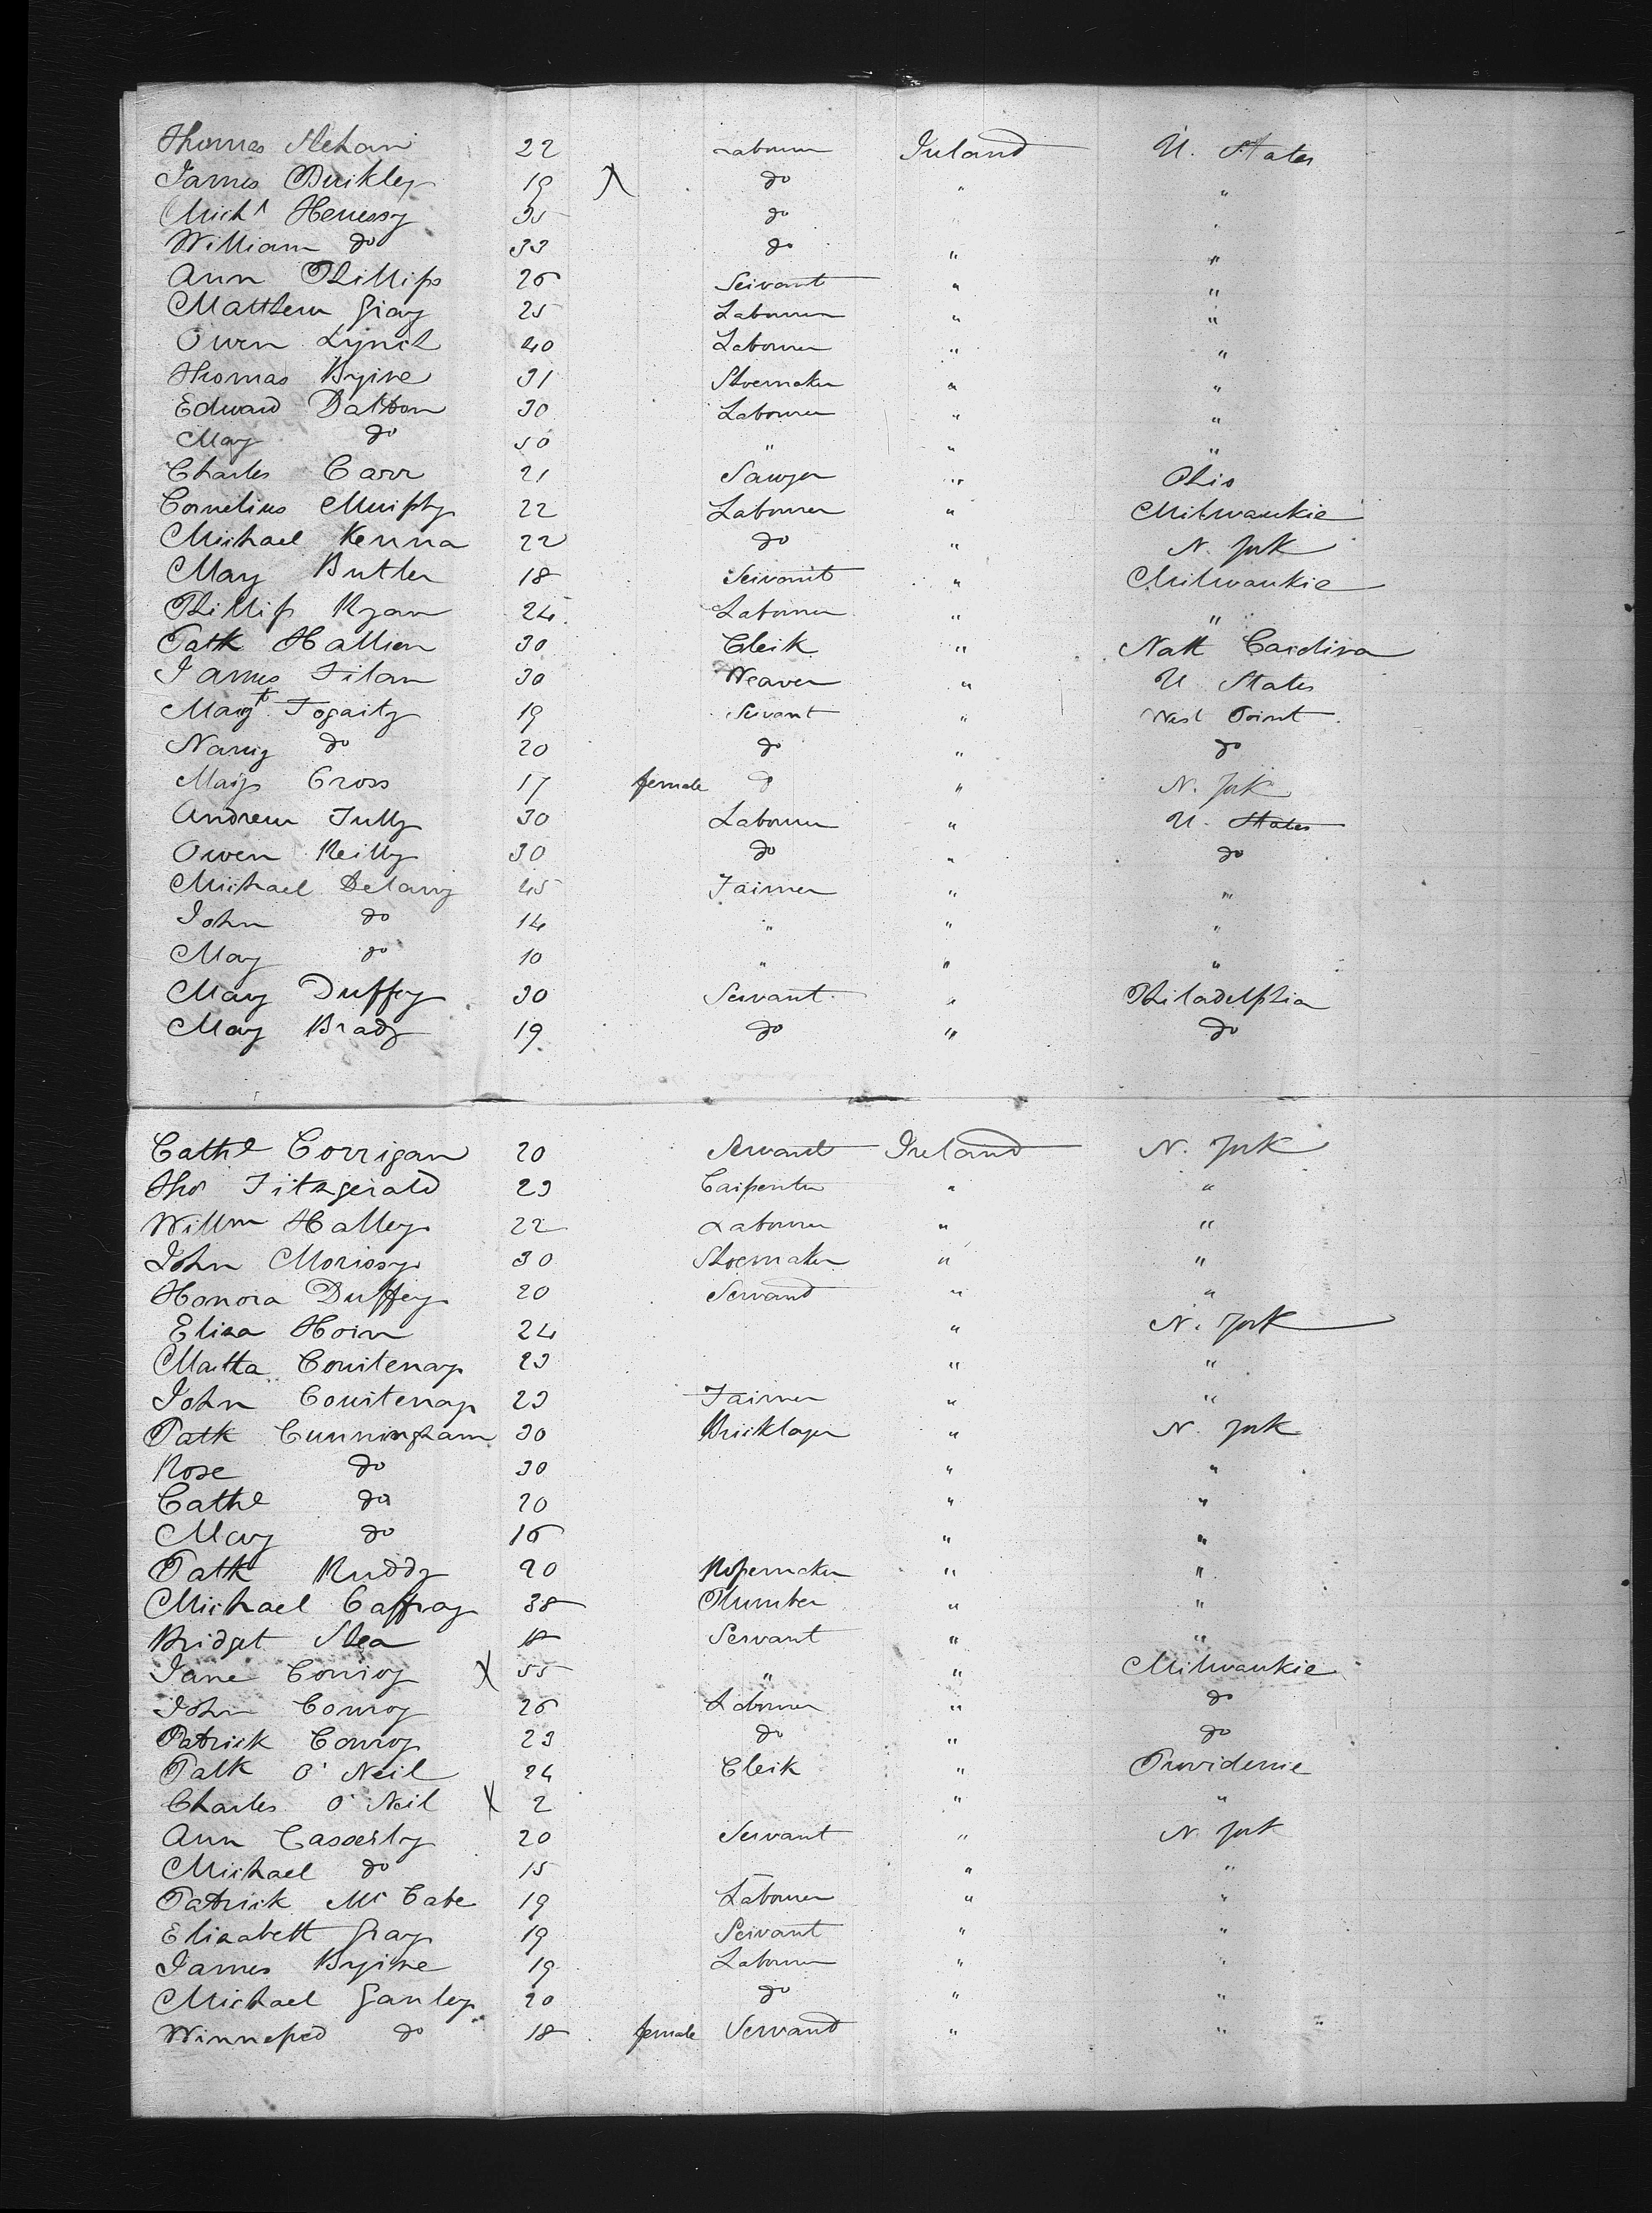 Thomas Mehan 22 Labourer Ireland U. States
James Buikley 19 X do " "
Michl Henessy 35 do " "
William do 33 do " "
Ann Phillips 26 Servant " "
Matthew Gray 25 Labourer " "
Owen Lynch 40 Labourer " "
Thomas Byrne 31 Shoemaker " "
Edward Dalton 30 Labourer " "
Mary do 50 " " "
Charles Carr 21 Sawyer " Ohio
Cornelius Murphy 22 Labourer " Milwaukie
Michael Kenna 22 do " N. York
Mary Butler 18 Servant " Milwaukie
Phillip Ryan 24 Labourer " "
Patk Hallion 30 Clerk " Nath Carolina
James Filan 30 Weaver " U States
Margt Fogarty 19 Servant " West Point
Nancy do 20 do " do
Mary Cross 17 female do " N. York
Andrew Tully 30 Labourer " U. States
Owen Reilly 30 do " do
Michael Delany 45 Farmer " "
John do 14 " " "
Mary do 10 " " "
Mary Duffey 30 Servant " Philadelphia
Mary Brady 19 do " do
Cathe Corrigan 20 Servant Ireland N. York
Thos Fitzgerald 23 Carpenter " "
Willm Halley 22 Labourer " "
John Morissy 30 Shoemaker " "
Honora Duffey 20 Servant " "
Eliza Horn 24 " N. York
Martha Courtenay 23 " "
John Courtenay 23 Farmer " "
Patk Cunningham 30 Bricklayer " N. York
Rose do 30 " "
Cathe do 20 " "
Mary do 16 " "
Patk Ruddy 20 Ropemaker " "
Michael Caffray 38 Plumber " "
Bridget Shea 18 Servant " "
Jane Conroy X 55 " " Milwaukie
John Conroy 26 Labourer " do
Patrick Conroy 23 do " do
Patk O'Neil 24 Clerk " Providence
Charles O'Neil X 2 " "
Ann Casserly 20 Servant " N. York
Michael do 15 " "
Patrick Mc Cabe 19 Labourer " "
Elizabeth Gray 19 Servant " "
James Byrne 19 Labourer " "
Michael Ganley 20 do " "
Winnefred do 18 female Servant " "